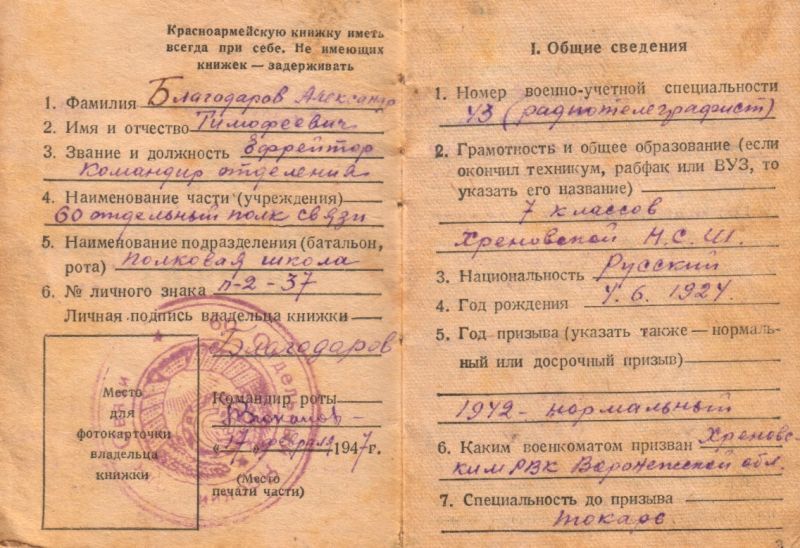 Красноармейскую книжку иметь
всегда при себе. Не имеющих
книжек — задерживать
1. Фамилия Благодаров Александр
2. Имя и отчество Тимофеевич
3. Звание и должность Ефрейтор
командир отделения
4. Наименование части (учреждения)
60 отдельный полк связи
5. Наименование подразделения (батальон,
рота) полковая школа
6. № личного знака п-2-37
Личная подпись владельца книжки
Благодаров
Место
для
фотокарточки
владельца
книжки
Командир роты
„17" февраля 1947 г.
(Место
печати части)
I. Общие сведения
1. Номер военно-учетной специальности
43 (радиотелеграфист)
2. Грамотность и общее образование (если
окончил техникум, рабфак или ВУЗ, то
указать его название)
7 классов
Хреновской Н.С.Ш.
3. Национальность Русский
4. Год рождения 4.6.1924.
5. Год призыва (указать также — нормаль-
ный или досрочный призыв)
1942 - нормальный
6. Каким военкоматом призван Хреновс-
ким РВК Воронежской обл.
7. Специальность до призыва
токарь
3